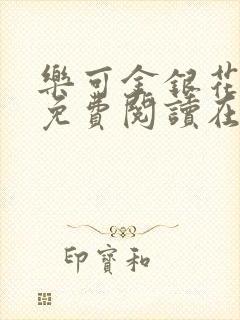 樂可金銀花
免費閱讀在
印寶和